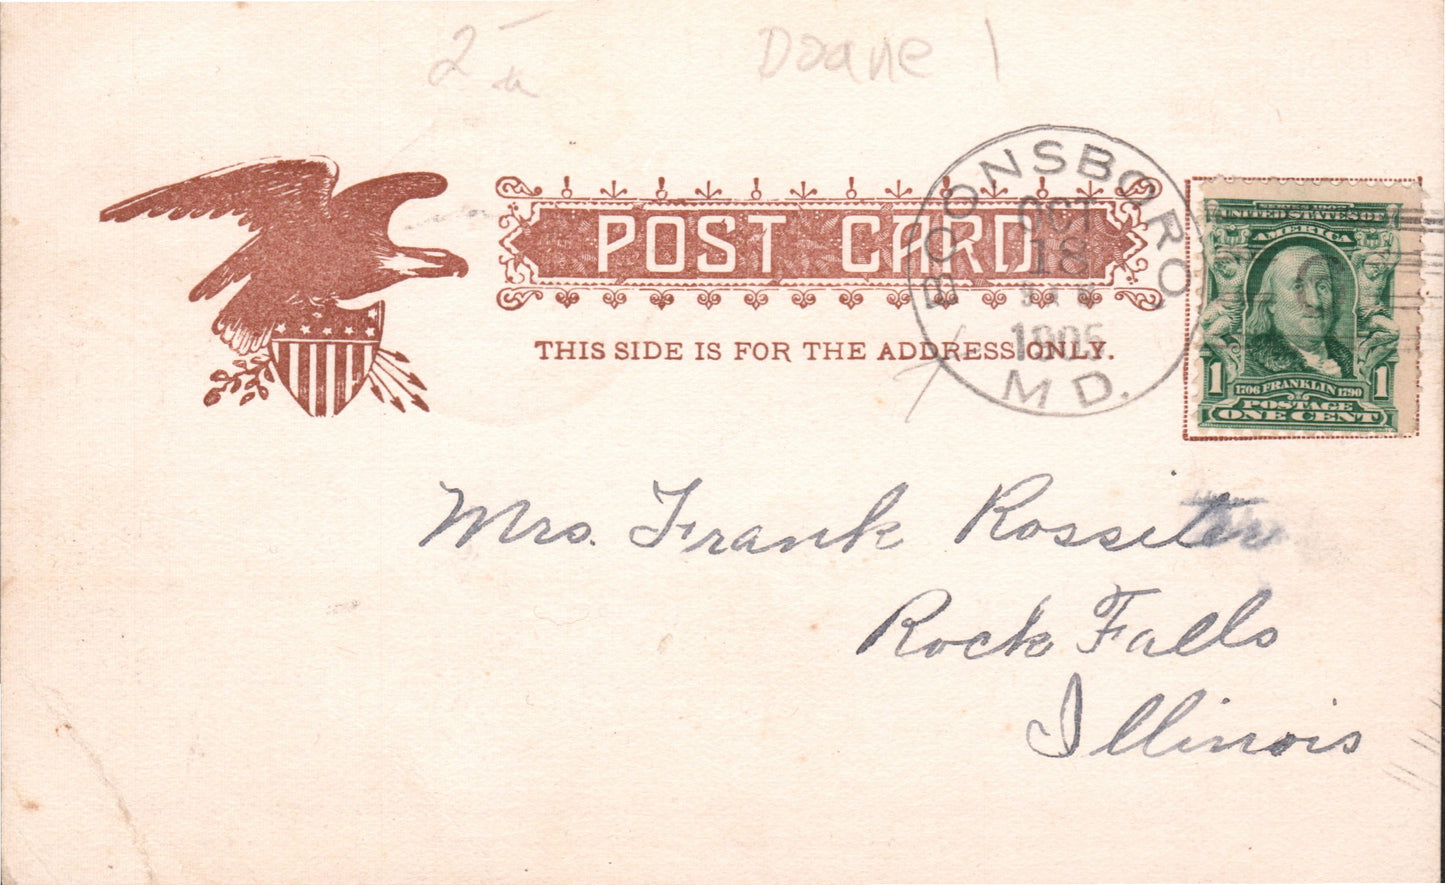 Doane 1
POST CARD
THIS SIDE IS FOR THE ADDRESS ONLY.
BOONSBORO,
OCT
18
1905
MD.
UNITED STATES OF
AMERICA
1 1706 FRANKLIN 1790 1
POSTAGE
ONE CENT
Mrs. Frank Rossiter
Rock Falls
Illinois